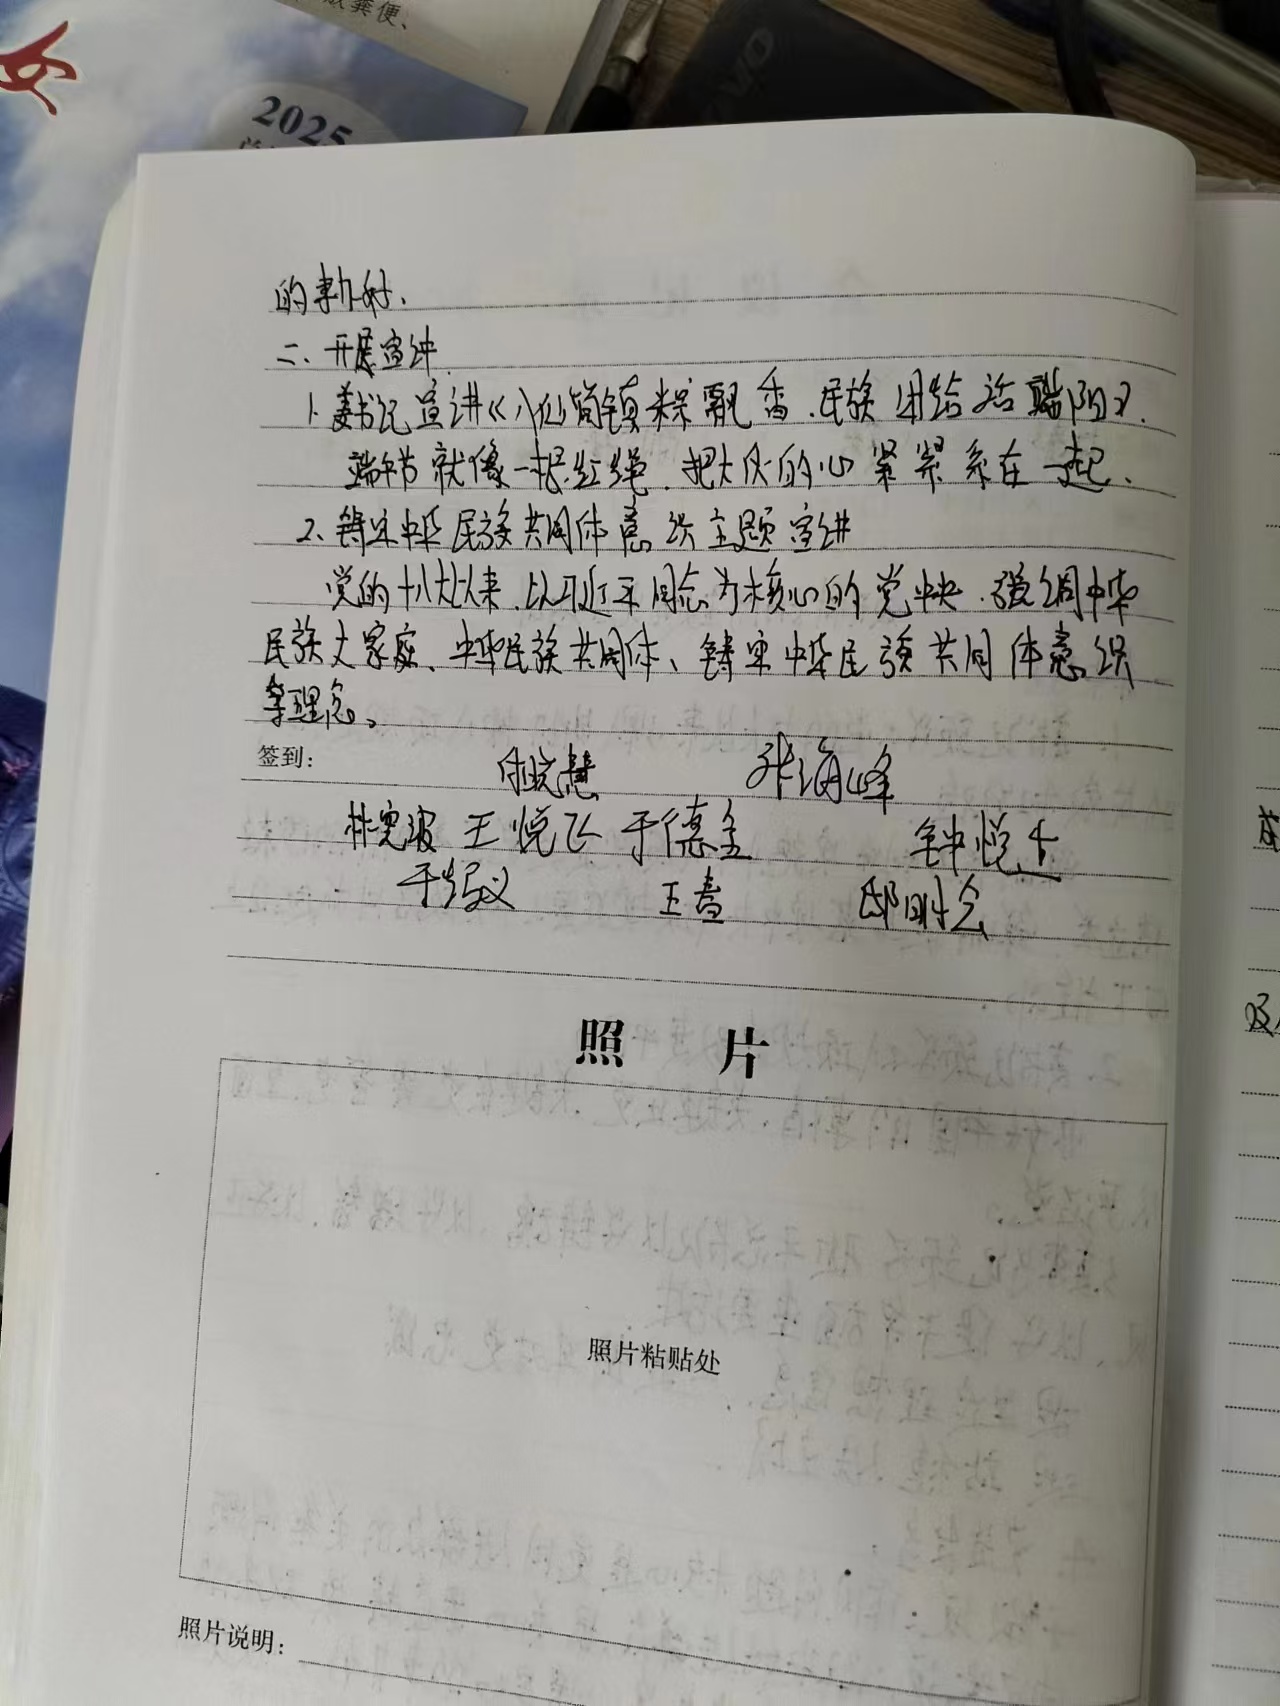 2025
的素材.
二、开展宣讲
1、姜书记宣讲《八仙筒镇粽飘香.民族团结话端阳》.
端午节就像一根红绳.把大伙的心紧紧系在一起.
2、铸牢中华民族共同体意识主题宣讲
党的十八大以来.以习近平同志为核心的党中央.强调中华
民族大家庭、中华民族共同体、铸牢中华民族共同体意识
等理念。
签到:
张海峰
王悦飞 于德全
王春
照 片
照片粘贴处
照片说明: